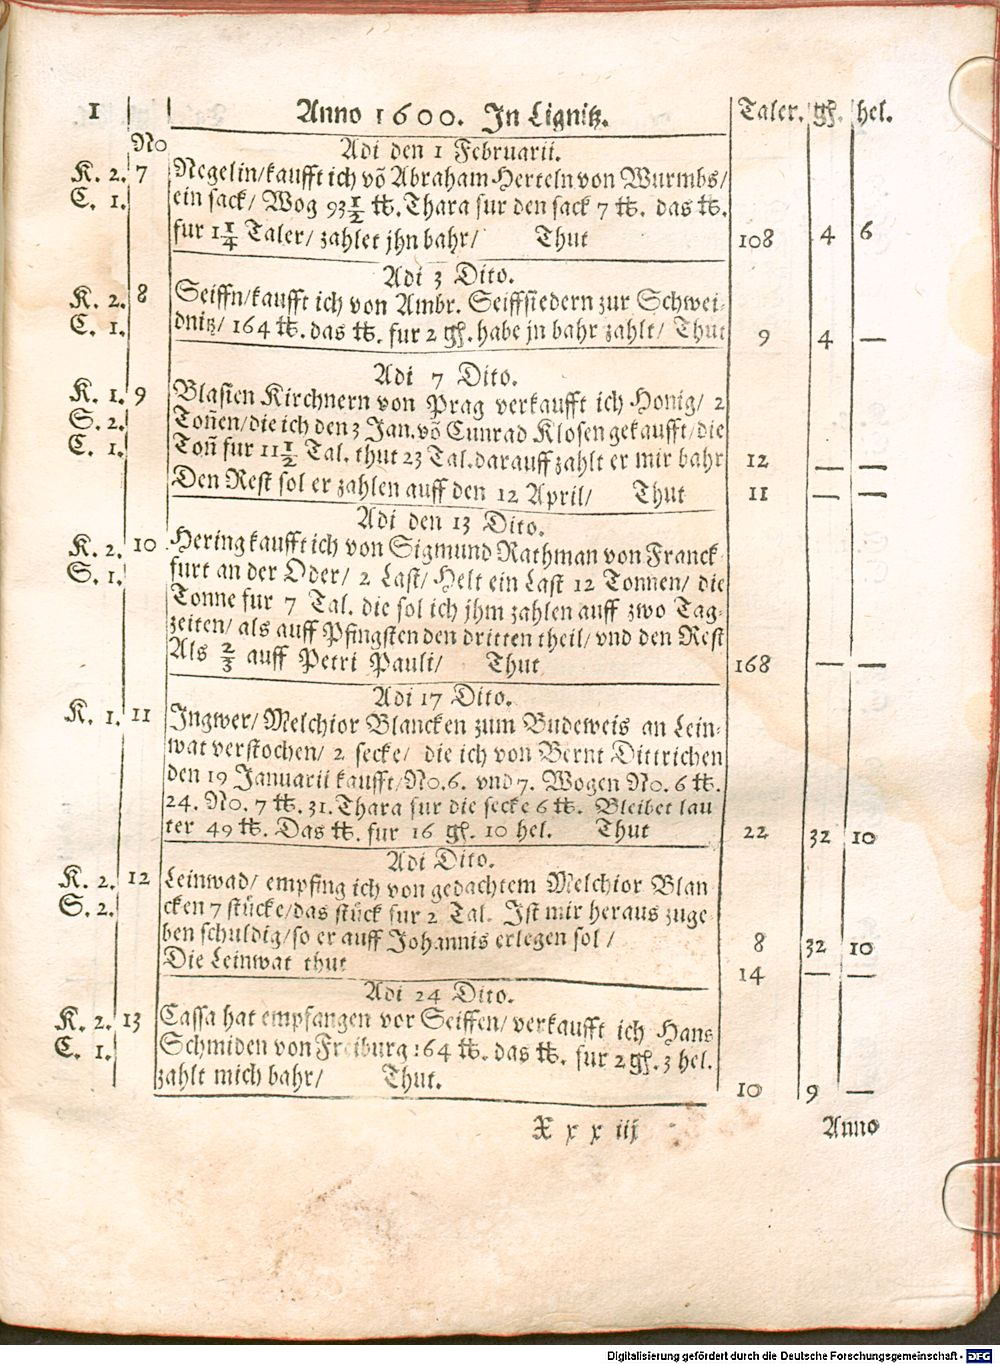 1 Anno 1600. In Lignitz. Taler. gl. hel.
No
Adi den 1 Februarii.
K. 2. 7 Negelin/kaufft ich võ Abraham Herteln von Wurmbs/
C. 1. ein sack/ Wog 93 1/2 ℔. Thara fur den sack 7 ℔. das ℔.
fur 1 1/4 Taler/ zahlet jhn bahr/ Thut 108 4 6
Adi 3 Dito.
K. 2. 8 Seiffn/kaufft ich von Ambr. Seiffsiedern zur Schwei-
C. 1. dnitz/ 164 ℔. das ℔. fur 2 gl. habe jn bahr zahlt/ Thut 9 4 —
Adi 7 Dito.
K. 1. 9 Blasien Kirchnern von Prag verkaufft ich Honig/ 2
S. 2. Toñen/die ich den 3 Jan. võ Cunrad Klosen gekaufft/die
C. 1. Toñ fur 11 1/2 Tal. thut 23 Tal. darauff zahlt er mir bahr 12 — —
Den Rest sol er zahlen auff den 12 April/ Thut 11 — —
Adi den 13 Dito.
K. 2. 10 Hering kaufft ich von Sigmund Rathman von Franck
S. 1. furt an der Oder/ 2 Last/ Helt ein Last 12 Tonnen/ die
Tonne fur 7 Tal. die sol ich jhm zahlen auff zwo Tag-
zeiten/ als auff Pfingsten den dritten theil/ vnd den Rest
Als 2/3 auff Petri Pauli/ Thut 168 — —
Adi 17 Dito.
K. 1. 11 Ingwer/ Melchior Blancken zum Budeweis an Lein-
wat verstochen/ 2 secke/ die ich von Bernt Dittrichen
den 19 Januarii kaufft/No.6. vnd 7. Wogen No. 6 ℔.
24. No. 7 ℔. 31. Thara fur die secke 6 ℔. Bleibet lau
ter 49 ℔. Das ℔. fur 16 gl. 10 hel. Thut 22 32 10
Adi Dito.
K. 2. 12 Leinwad/ empfing ich von gedachtem Melchior Blan
S. 2. cken 7 stücke/das stück fur 2 Tal. Ist mir heraus zuge
ben schuldig/so er auff Johannis erlegen sol/ 8 32 10
Die Leinwat thut 14 — —
Adi 24 Dito.
K. 2. 13 Cassa hat empfangen vor Seiffen/ verkaufft ich Hans
C. 1. Schmiden von Freiburg 164 ℔. das ℔. fur 2 gl. 3 hel.
zahlt mich bahr/ Thut. 10 9 —
X x x iij Anno
Digitalisierung gefördert durch die Deutsche Forschungsgemeinschaft - DFG